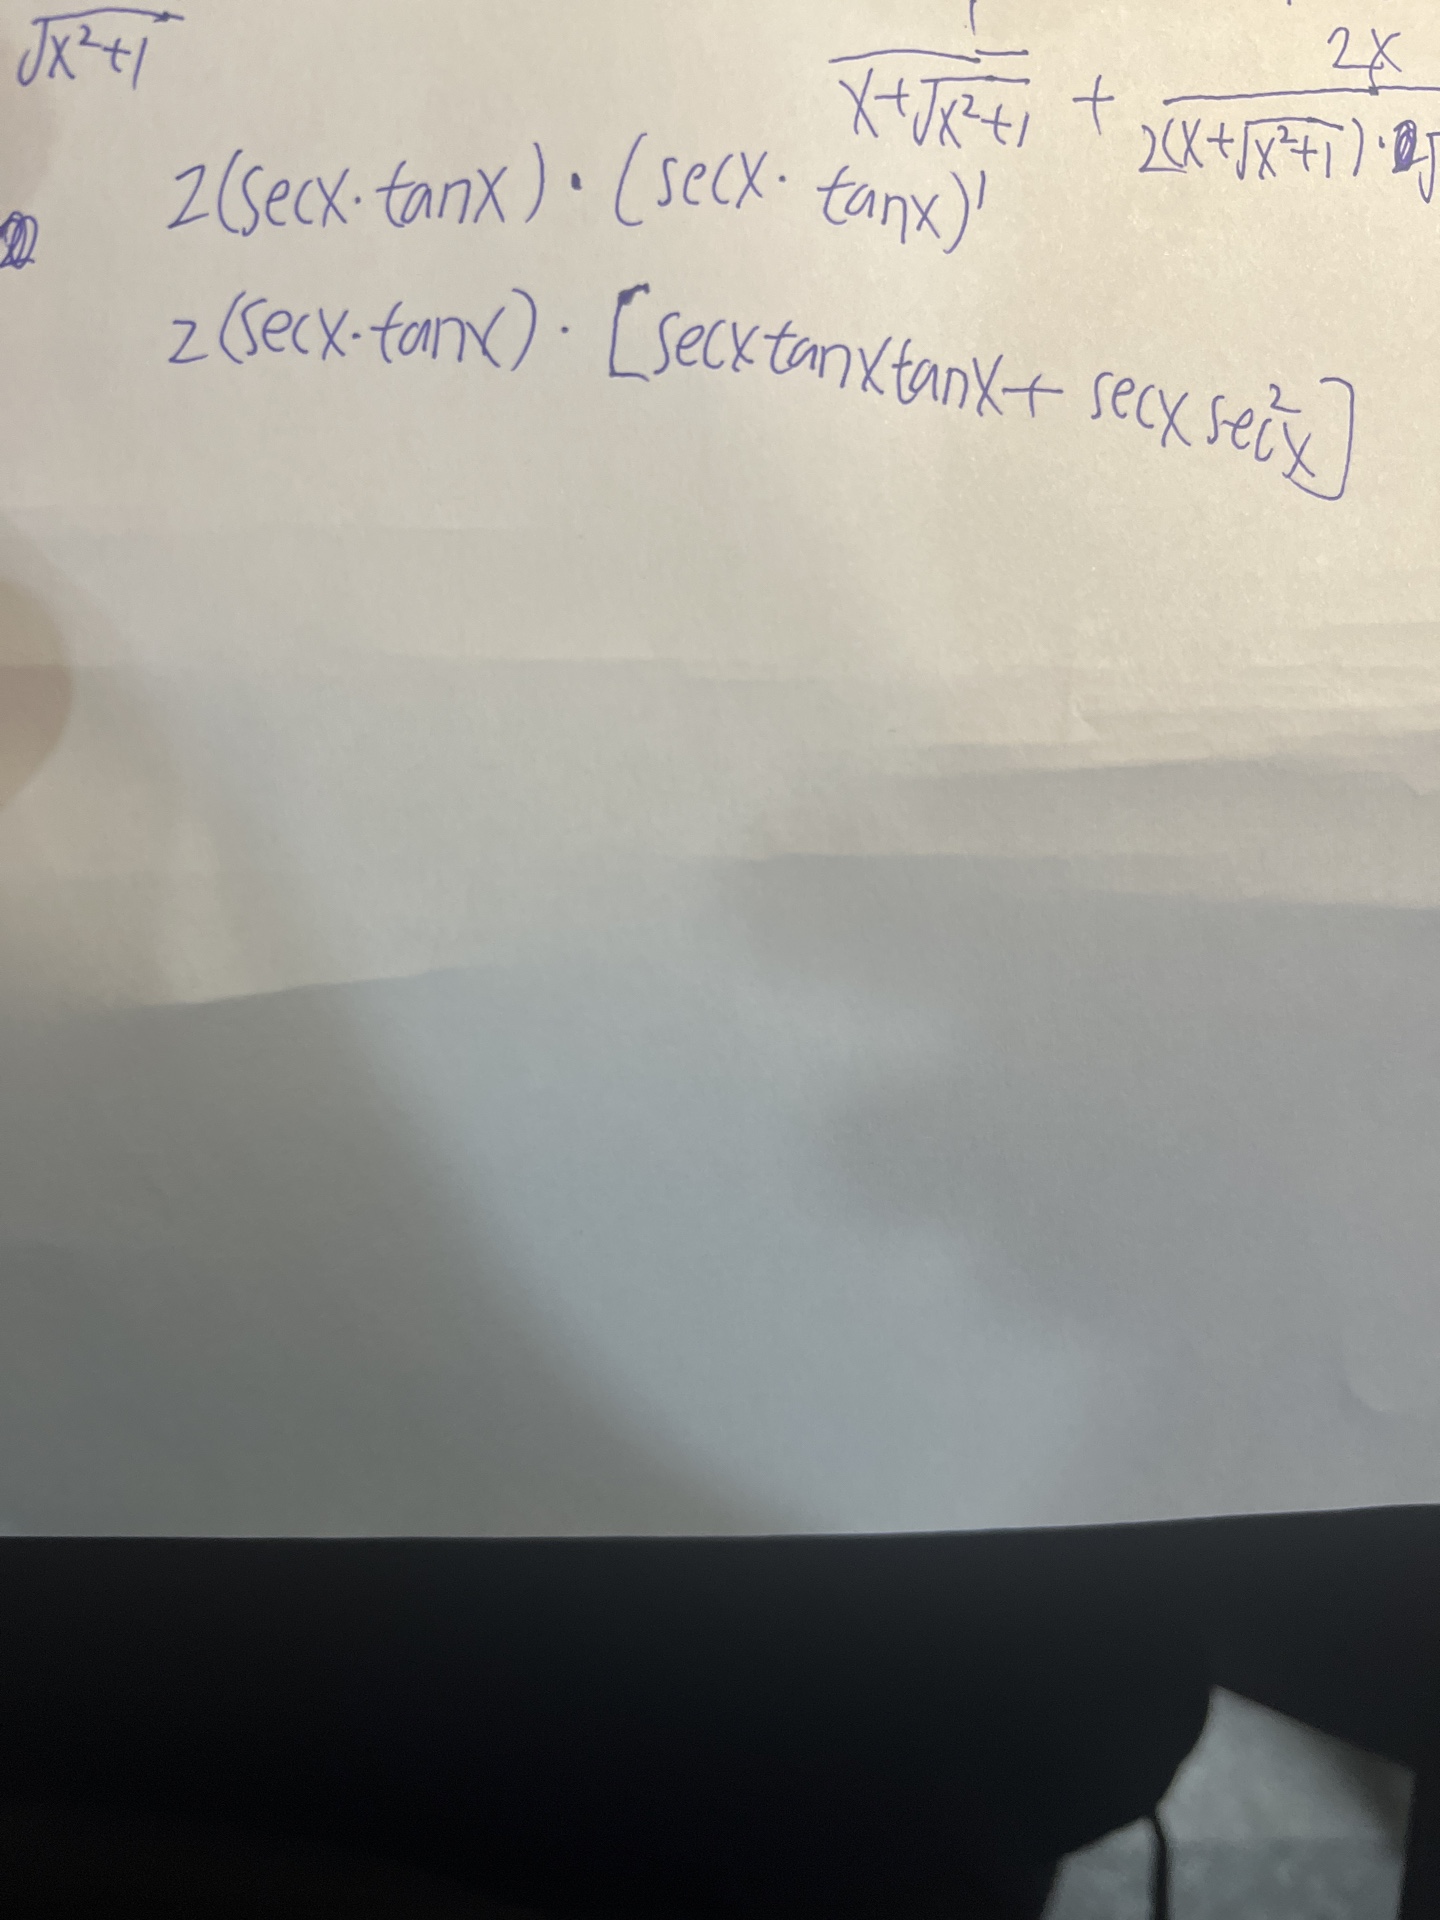 √x²+1
1/(x+√x²+1) + 2x/(2(x+√x²+1)·
2(secx·tanx)·(secx·tanx)'
2(secx·tanx)·[secxtanxtanx+secxsec²x]